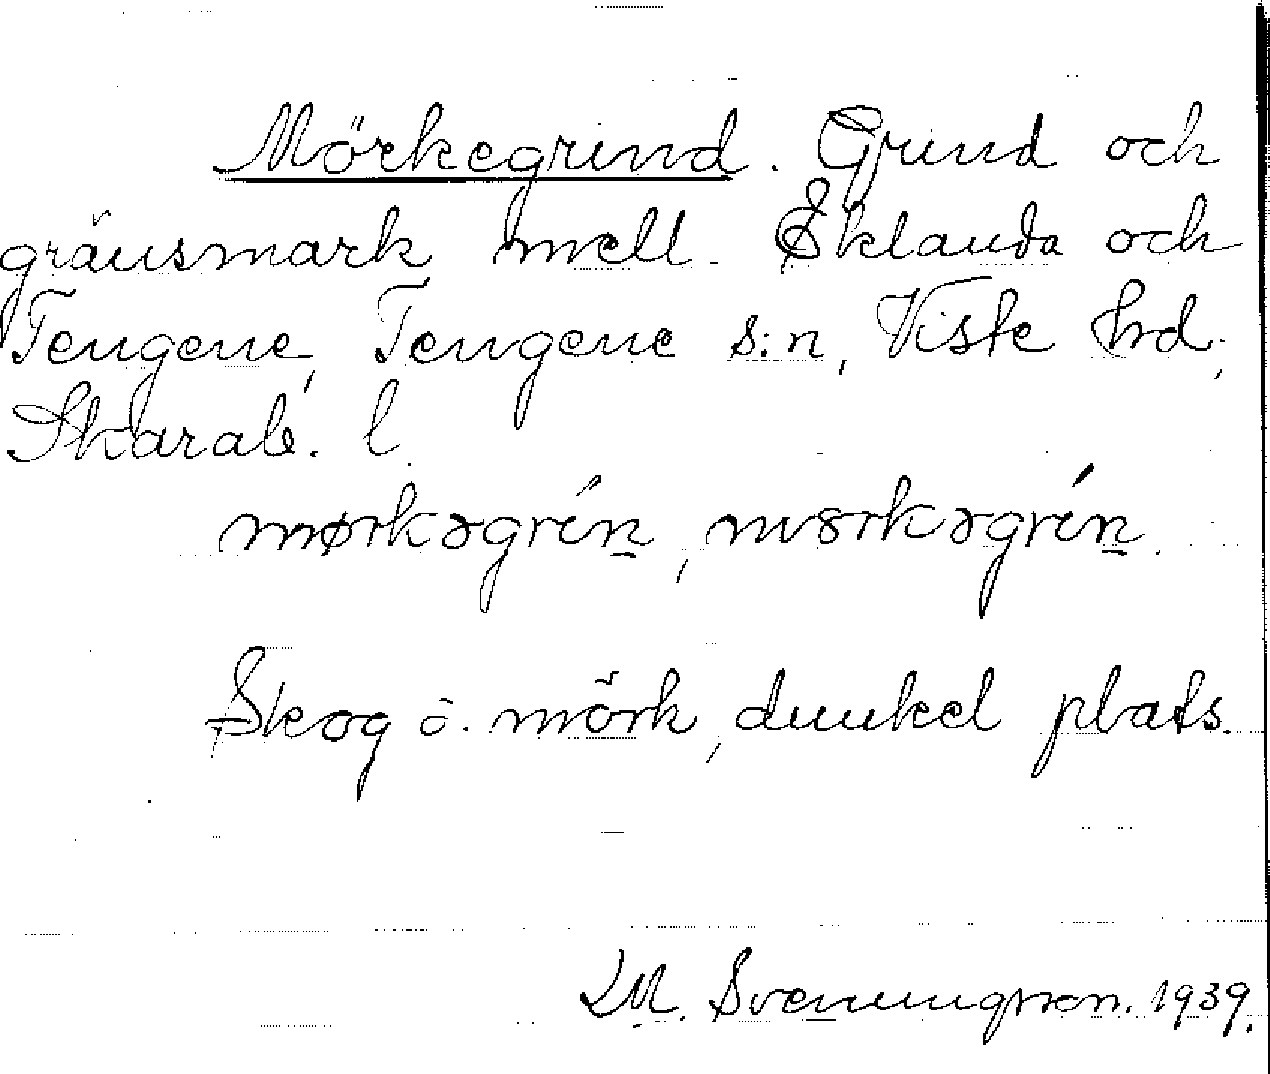 Mörkegrind. Grind och
gränsmark mell. Eklanda och
Tengene, Tengene s:n, Viste hrd,
Skarab. l.
mørkəgrín, mɤrkəgrín.
Skog o. mörk, dunkel plats.
M. Svenningson. 1939.